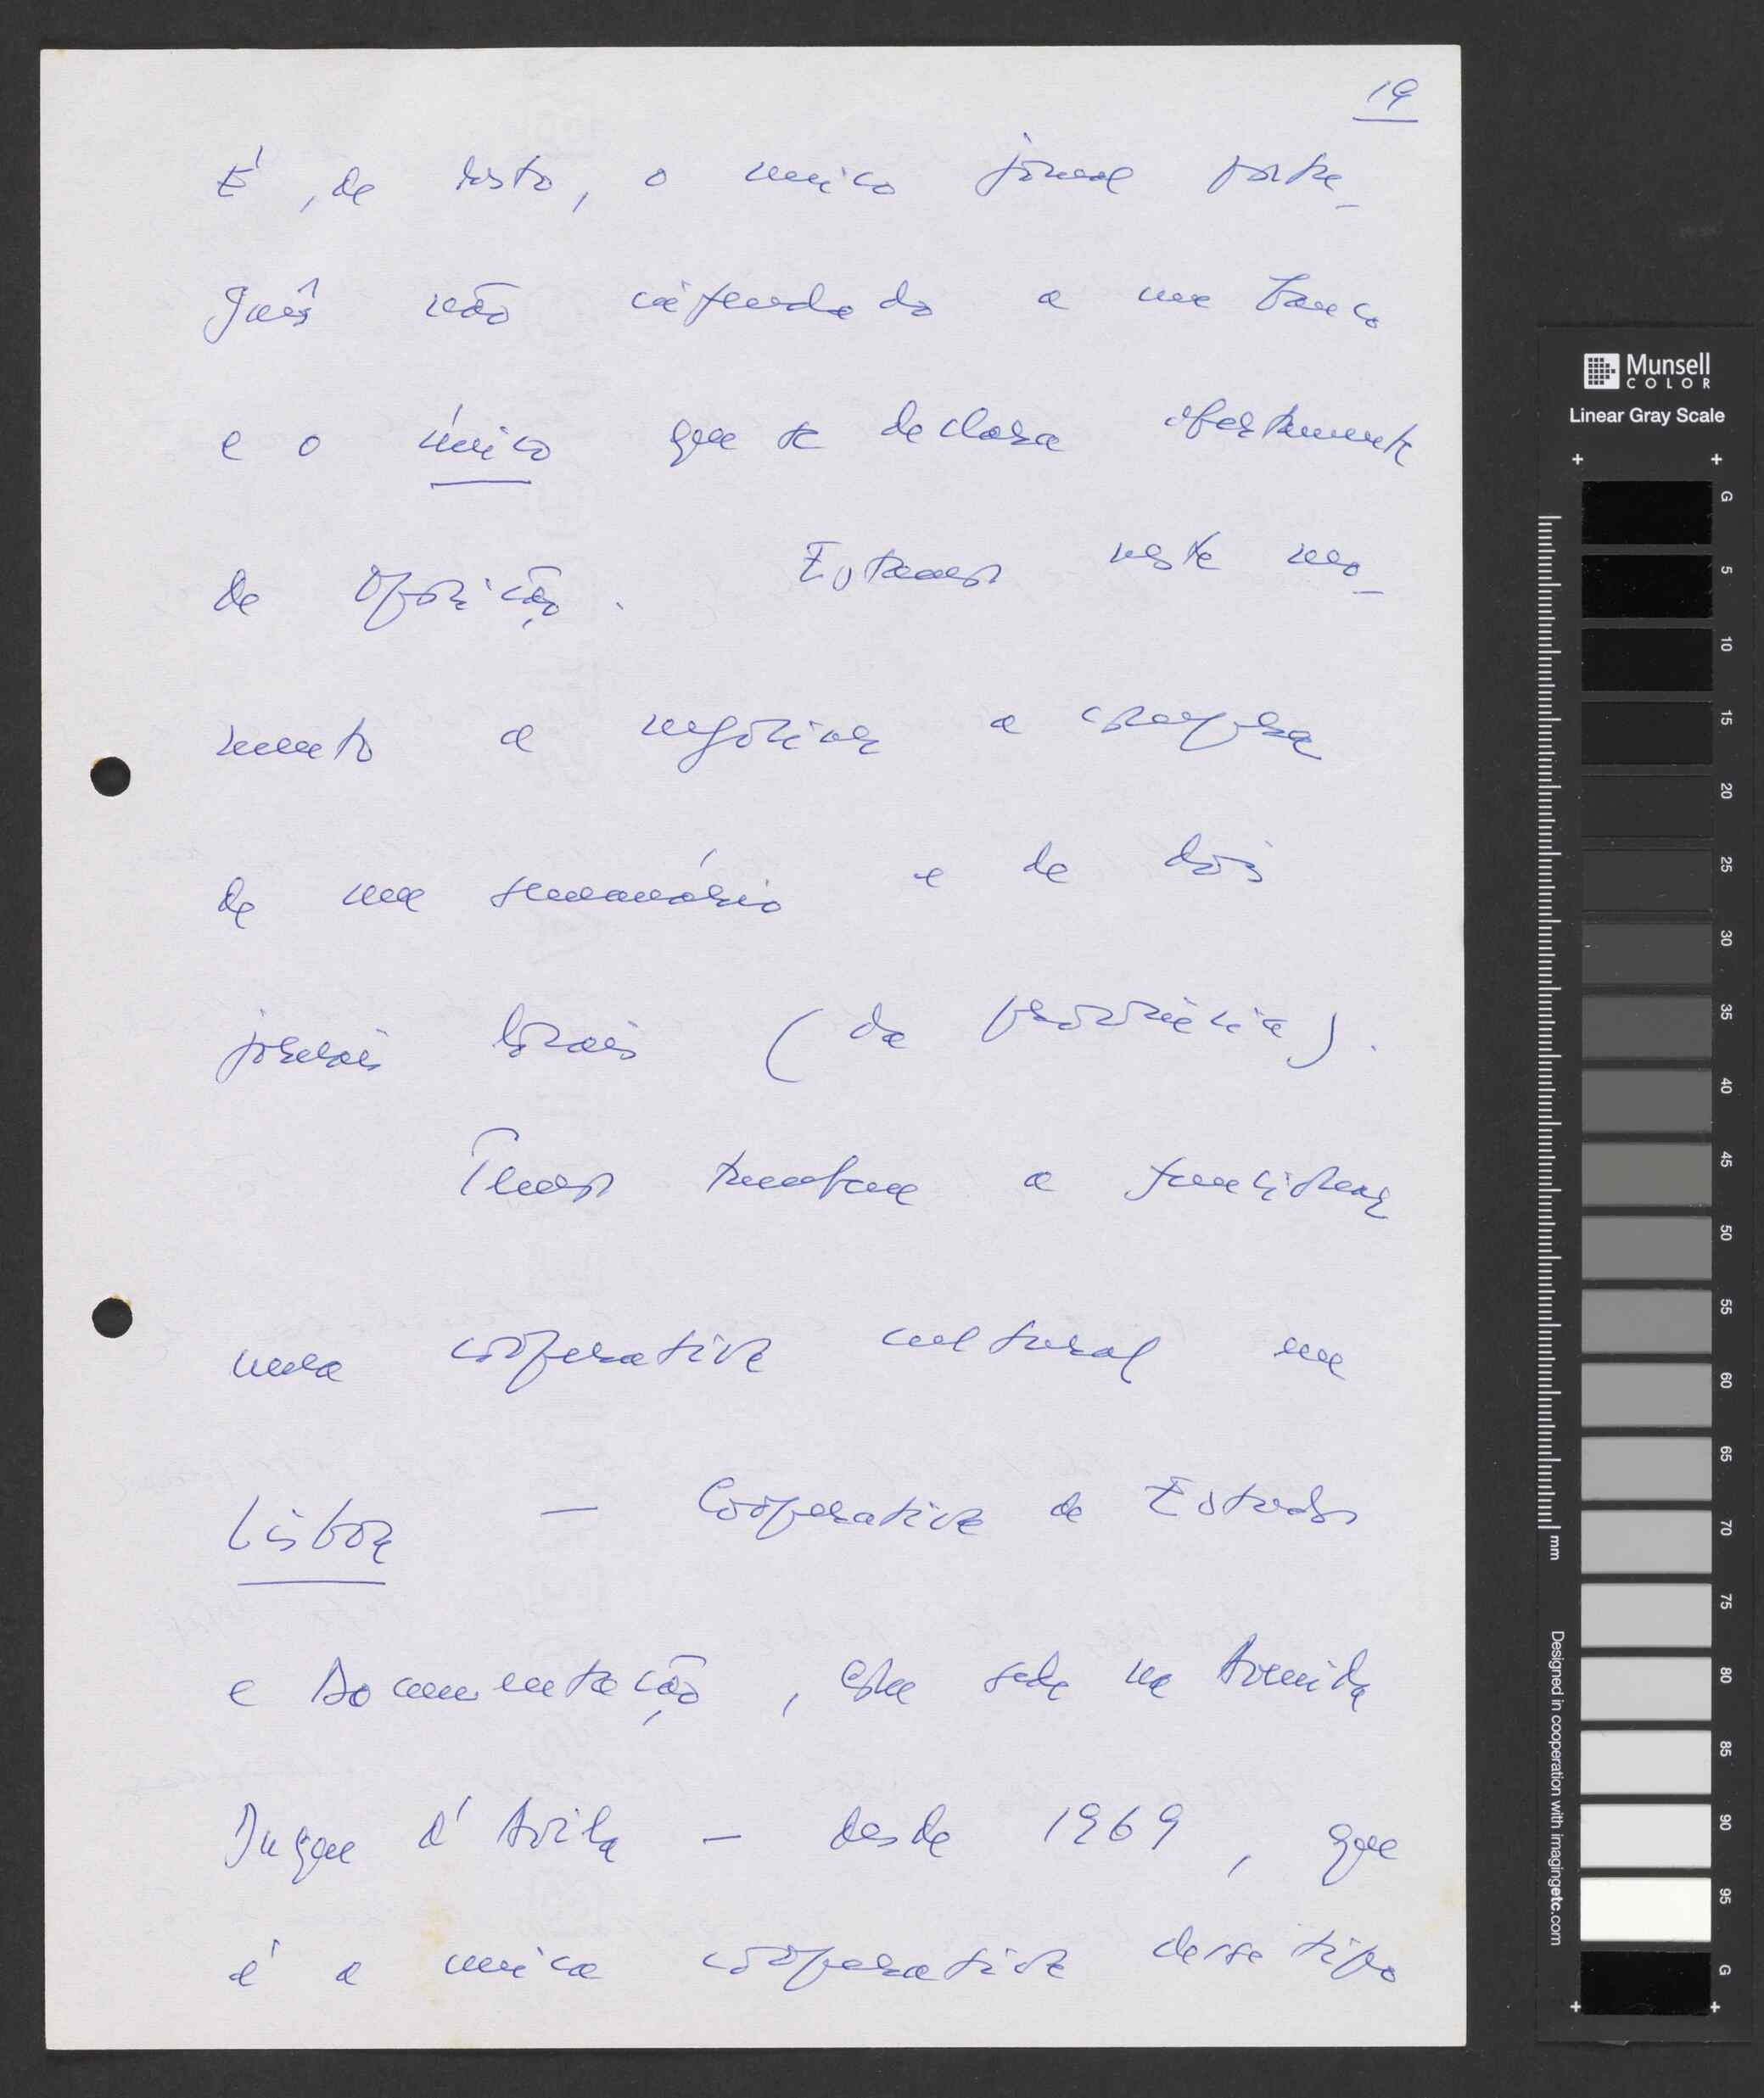 19
É, de resto, o unico jornal portu-
guês não enfeudado a um banco
e o único que se declara abertamente
de oposição. Estamos neste mo-
mento a negociar a compra
de um semanário e de dois
jornais locais (da provincia).
Temos tambem a funcionar
uma cooperativa cultural em
Lisboa — Cooperativa de Estudos
e Documentação, com sede na Avenida
Duque d'Avila — desde 1969, que
é a unica cooperativa desse tipo
Munsell
COLOR
Linear Gray Scale
G
5
10
15
20
25
30
35
40
45
50
55
60
65
70
75
80
85
90
95
G
mm
Designed in cooperation with imagingetc.com